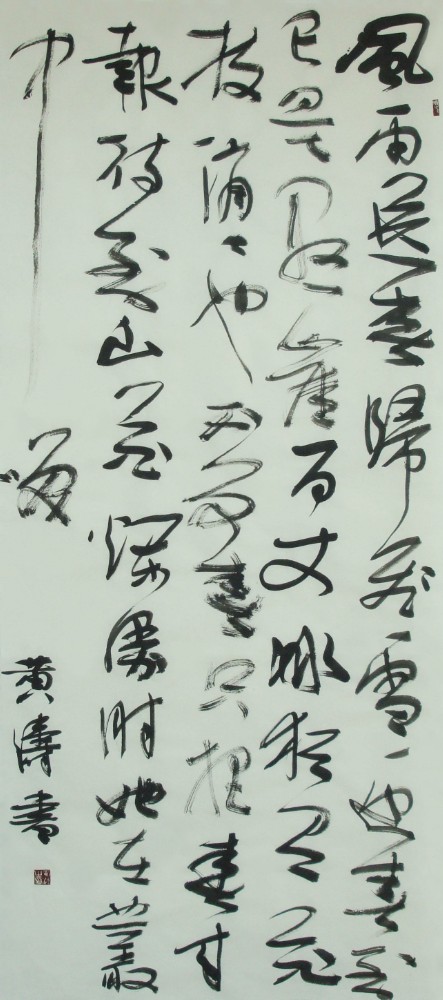 風雨送春歸飛雪迎春到
已是懸崖百丈冰猶有花
枝俏〻也不爭春只把春来
報待到山花爛漫時她在叢
中笑
黄濤書